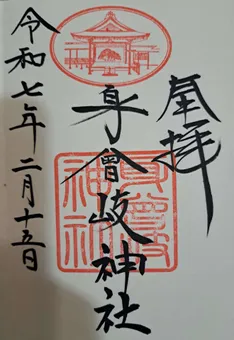 奉拝
身曾岐神社
令和七年二月十五日
身曾岐
神社